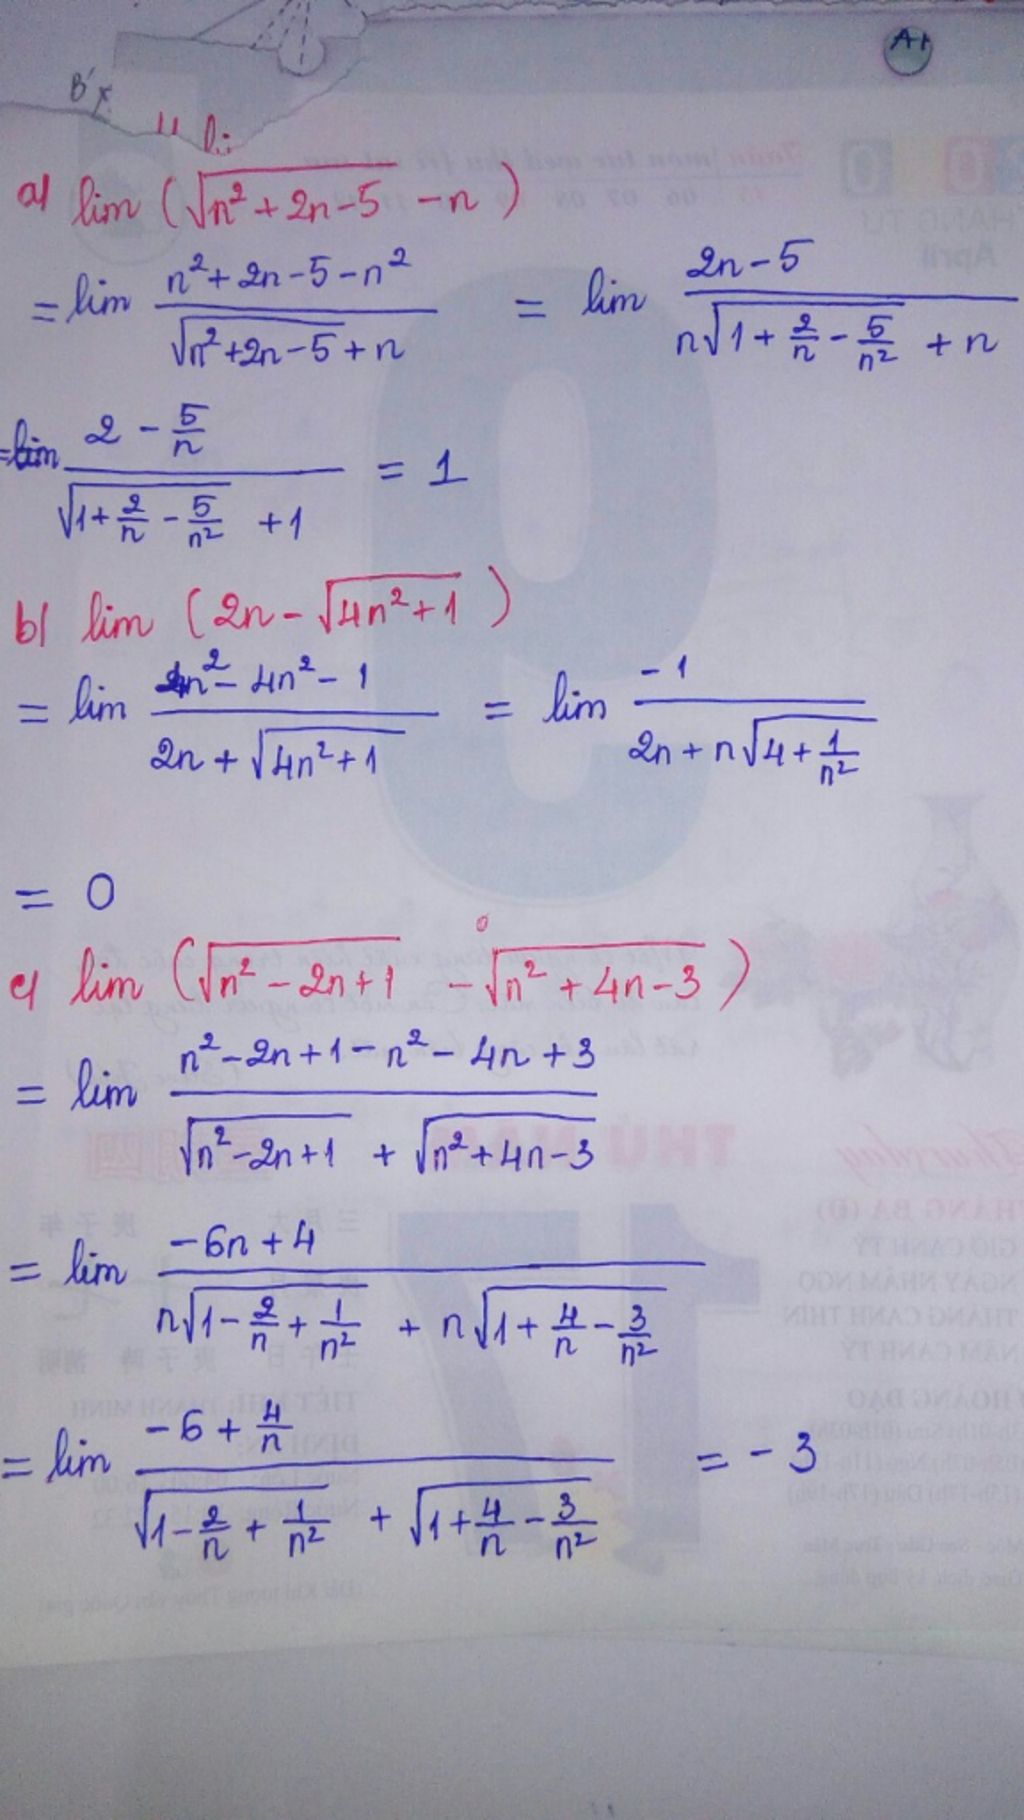 A1
B' x
a) lim (√(n² + 2n - 5) - n)
= lim (n² + 2n - 5 - n²)/(√(n² + 2n - 5) + n) = lim (2n - 5)/(n√(1 + 2/n - 5/n²) + n)
= lim (2 - 5/n)/(√(1 + 2/n - 5/n²) + 1) = 1
b) lim (2n - √(4n² + 1))
= lim (4n² - 4n² - 1)/(2n + √(4n² + 1)) = lim (-1)/(2n + n√(4 + 1/n²))
= 0
c) lim (√(n² - 2n + 1) - √(n² + 4n - 3))
= lim (n² - 2n + 1 - n² - 4n + 3)/(√(n² - 2n + 1) + √(n² + 4n - 3))
= lim (-6n + 4)/(n√(1 - 2/n + 1/n²) + n√(1 + 4/n - 3/n²))
= lim (-6 + 4/n)/(√(1 - 2/n + 1/n²) + √(1 + 4/n - 3/n²)) = -3